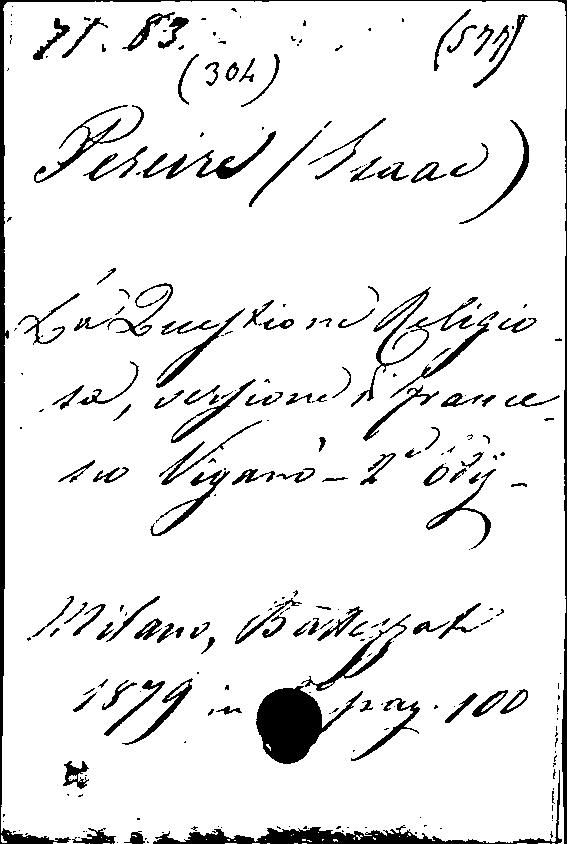 71. 83. (577)
(304)
Pereire (Isaac)
La Questione Religio
sa, versione di France
sco Viganò - 2ª
Milano, Battezzati
1879 in pag. 100